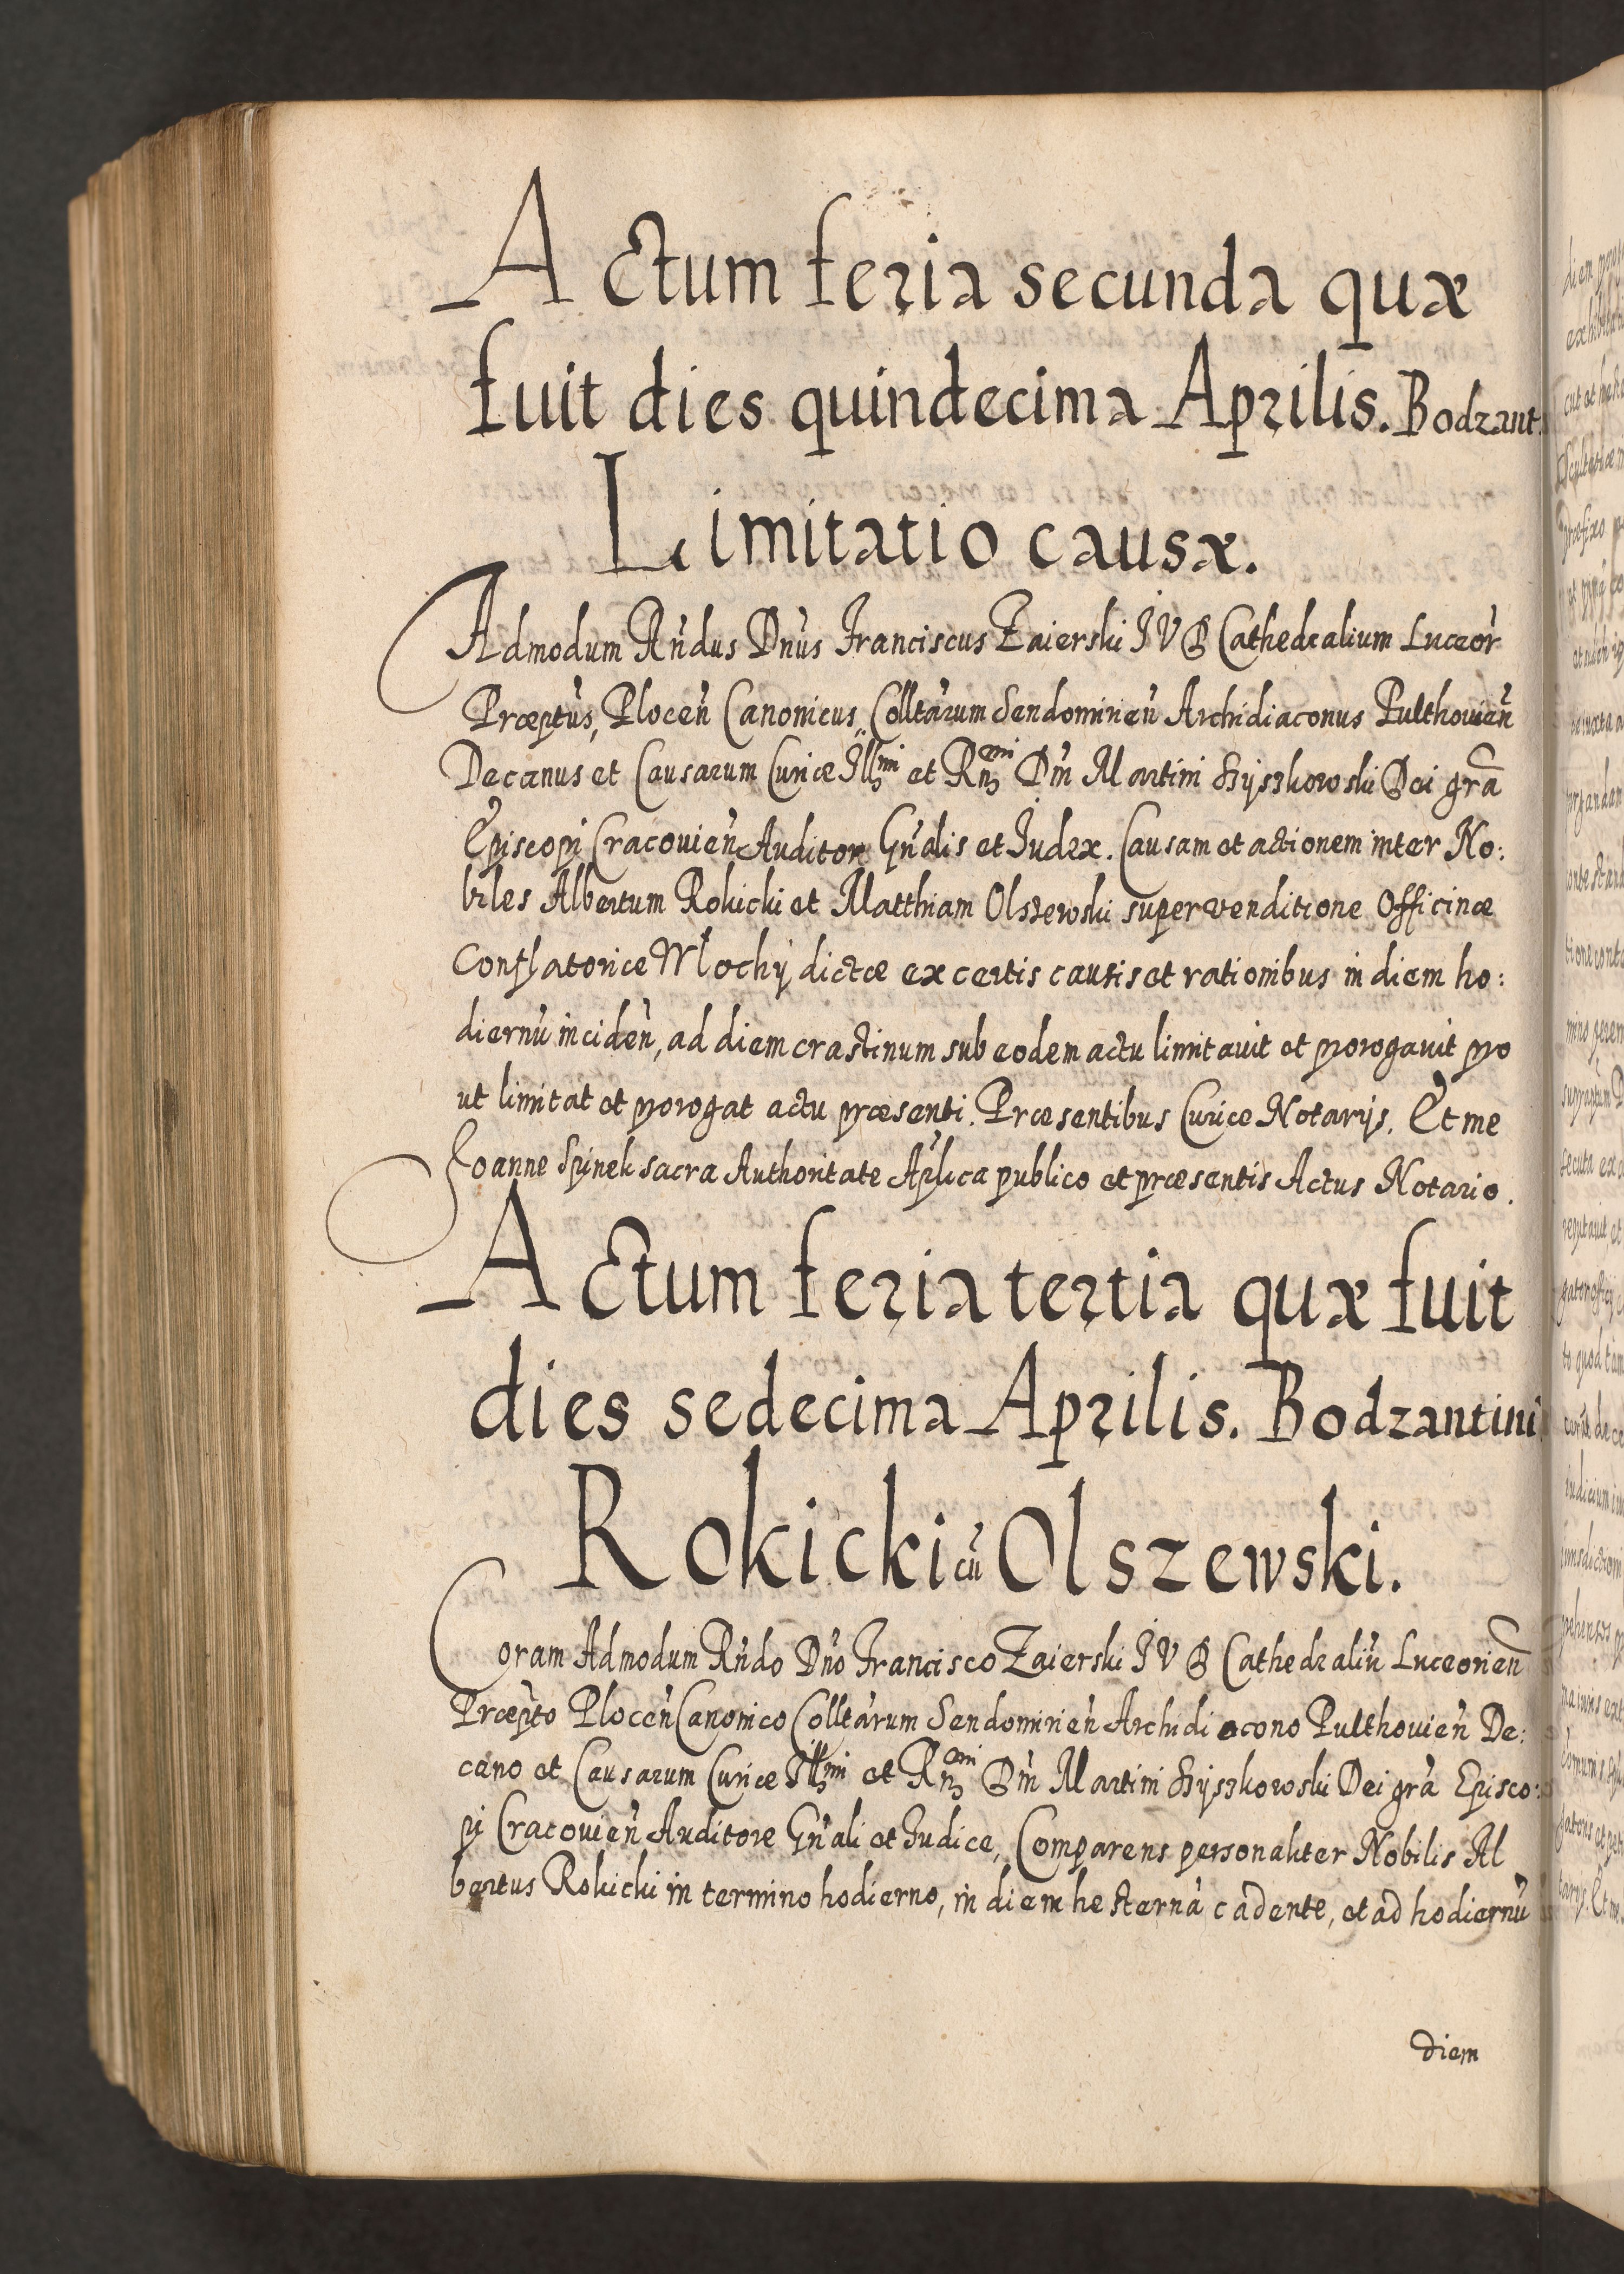 Actum feria secunda quæ
fuit dies quindecima Aprilis. Bodzant.
Limitatio causæ.
Admodum Rńdus Dńus Franciscus Zaierski I V D Cathedralium Luceor
Præptus, Plocen̄ Canonicus, Colltarum Sendomirien̄ Archidiaconus Pulthovien̄
Decanus et Causarum Curiæ Illmi et Rndmi Dm̄ Martini Szyszkowski Dei gra̅
Episcopi Cracovien̄ Auditor Gn̄alis et Iudex. Causam et actionem inter No:
biles Albertum Rokicki et Matthiam Olszewski super venditione Officinæ
Conflatoriæ Mlochy dictæ ex certis causis et rationibus in diem ho:
diernū inciden̄, ad diem crastinum sub eodem actu limitauit et prorogauit pro
ut limitat et prorogat actu præsenti. Præsentibus Curiæ Notarijs. Et me
Joanne Spinek sacra Authoritate Aplica publico et præsentis Actus Notario.
Actum feria tertia quæ fuit
dies sedecima Aprilis. Bodzantini
Rokicki cū Olszewski.
Coram Admodum Rńdo Dńo Francisco Zaierski I V D Cathedraliū Luceorien̄
Præpto Plocen̄ Canonico Colltarum Sendomirien̄ Archidiacono Pulthouien̄ De:
cano et Causarum Curiæ Illmi et Rndmi Dm̄ Martini Szyszkowski Dei gra̅ Episco:
pi Cracouien̄ Auditore Gn̄ali et Iudice, Comparens personaliter Nobilis Al
bertus Rokicki in termino hodierno, in diem hesternā cadente, et ad hodiernū
diem